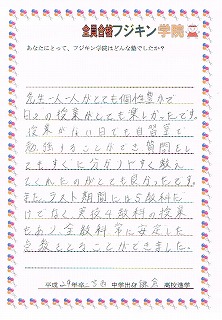 全員合格フジキン学院
あなたにとって、フジキン学院はどんな塾でしたか?
先生一人一人がとても個性豊かで
日々の授業がとても楽しかったです。
授業がない日でも自習室で
勉強することができ質問を
してもすぐに分かりやすく教え
てくれたのがとても良かったです。
また、テスト期間には5教科だ
けでなく、実技4教科の授業
もあり、全教科常に安定した
点数をとることができました。
平成29年卒 中学出身 高校進学